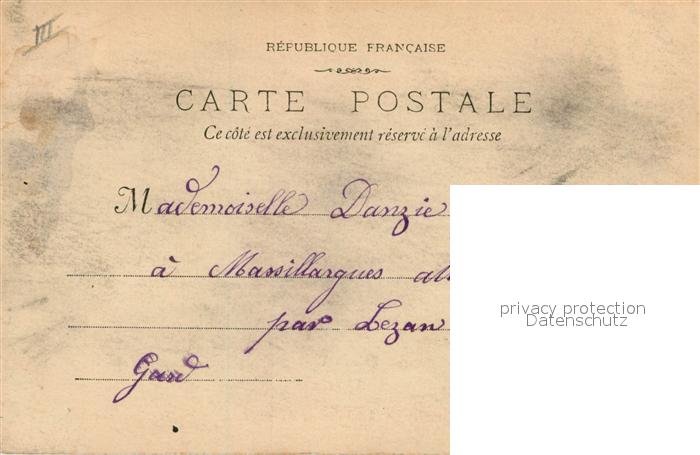 III
RÉPUBLIQUE FRANÇAISE
CARTE POSTALE
Ce côté est exclusivement réservé à l'adresse
Mademoiselle Danzie
à Massillargues
par Lezan
Gard
privacy protection
Datenschutz